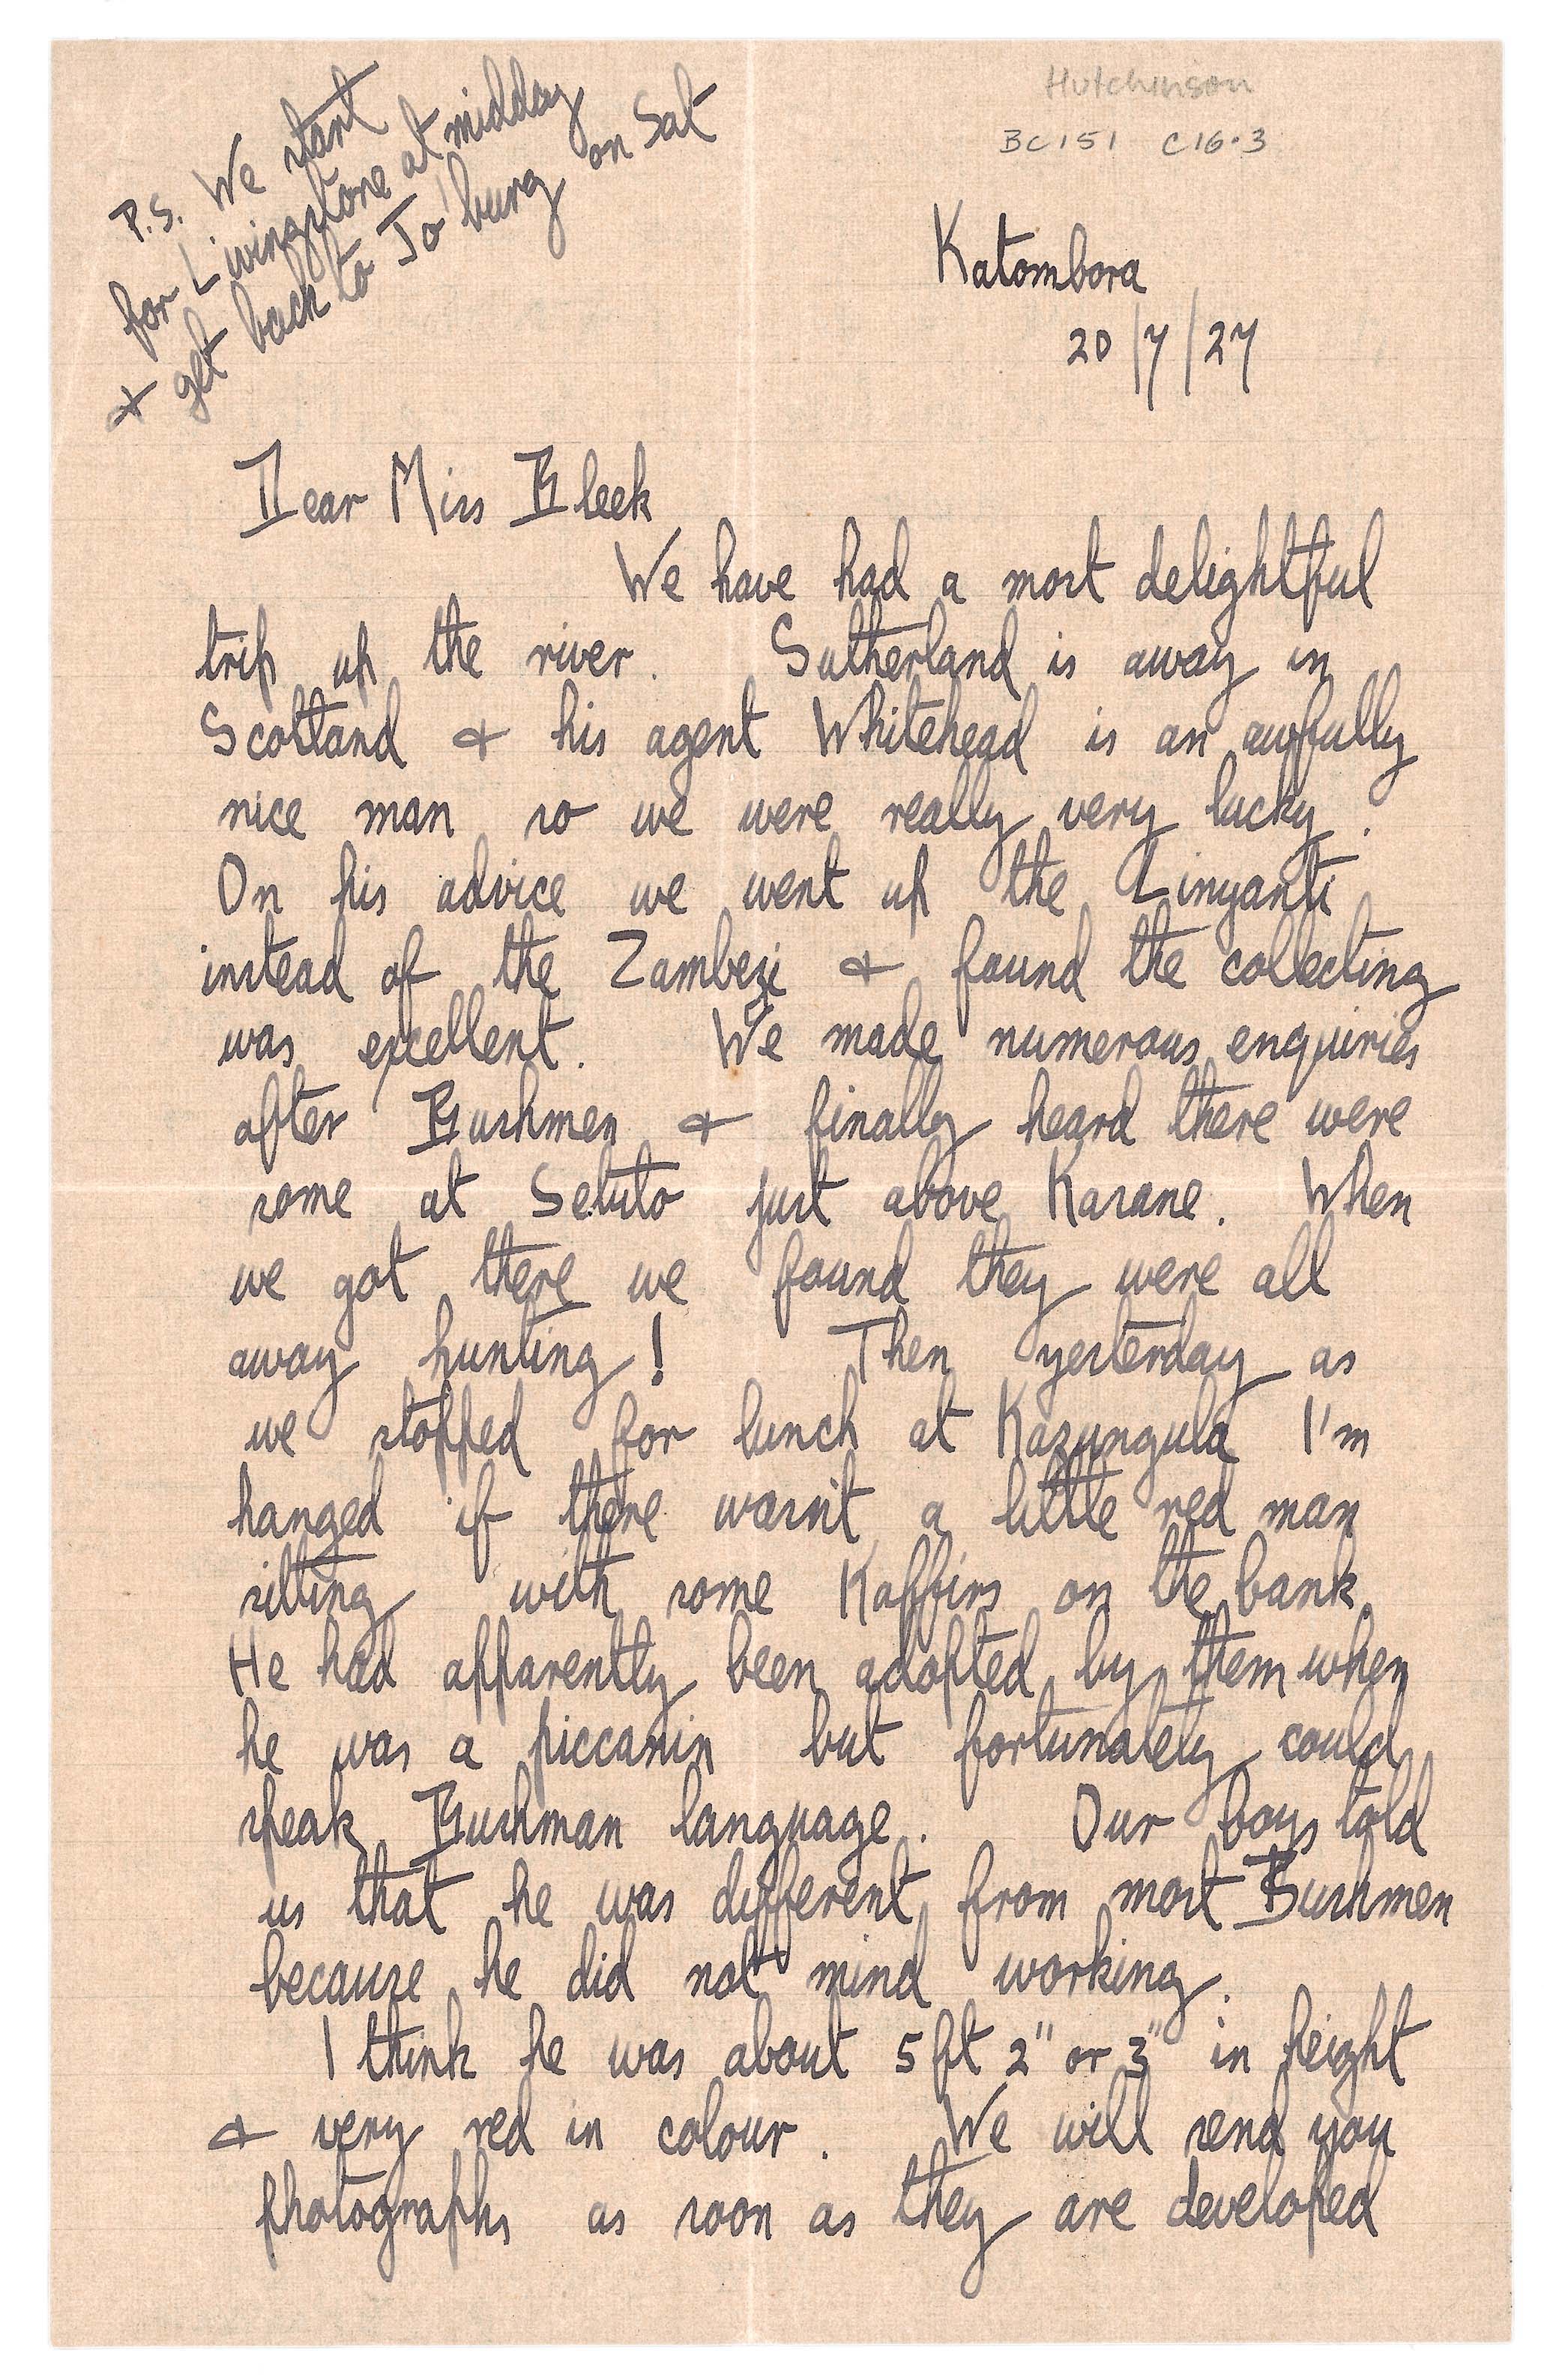 P.S. We start
for Livingstone at midday
& get back to Jo'burg on Sat
Hutchinson
BC151 C16.3
Katombora
20/7/27
Dear Miss Bleek
We have had a most delightful
trip up the river. Sutherland is away in
Scotland & his agent Whitehead is an awfully
nice man so we were really very lucky.
On his advice we went up the Linyanti
instead of the Zambezi & found the collecting
was excellent. We made numerous enquiries
after Bushmen & finally heard there were
some at Sebuto just above Kasane. When
we got there we found they were all
away hunting! Then yesterday as
we stopped for lunch at Kazungula I'm
hanged if there wasn't a little red man
sitting with some Kaffirs on the bank
He had apparently been adopted by them when
he was a piccanin but fortunately could
speak Bushman language. Our boys told
us that he was different from most Bushmen
because he did not mind working.
I think he was about 5 ft 2" or 3" in height
& very red in colour. We will send you
photographs as soon as they are developed